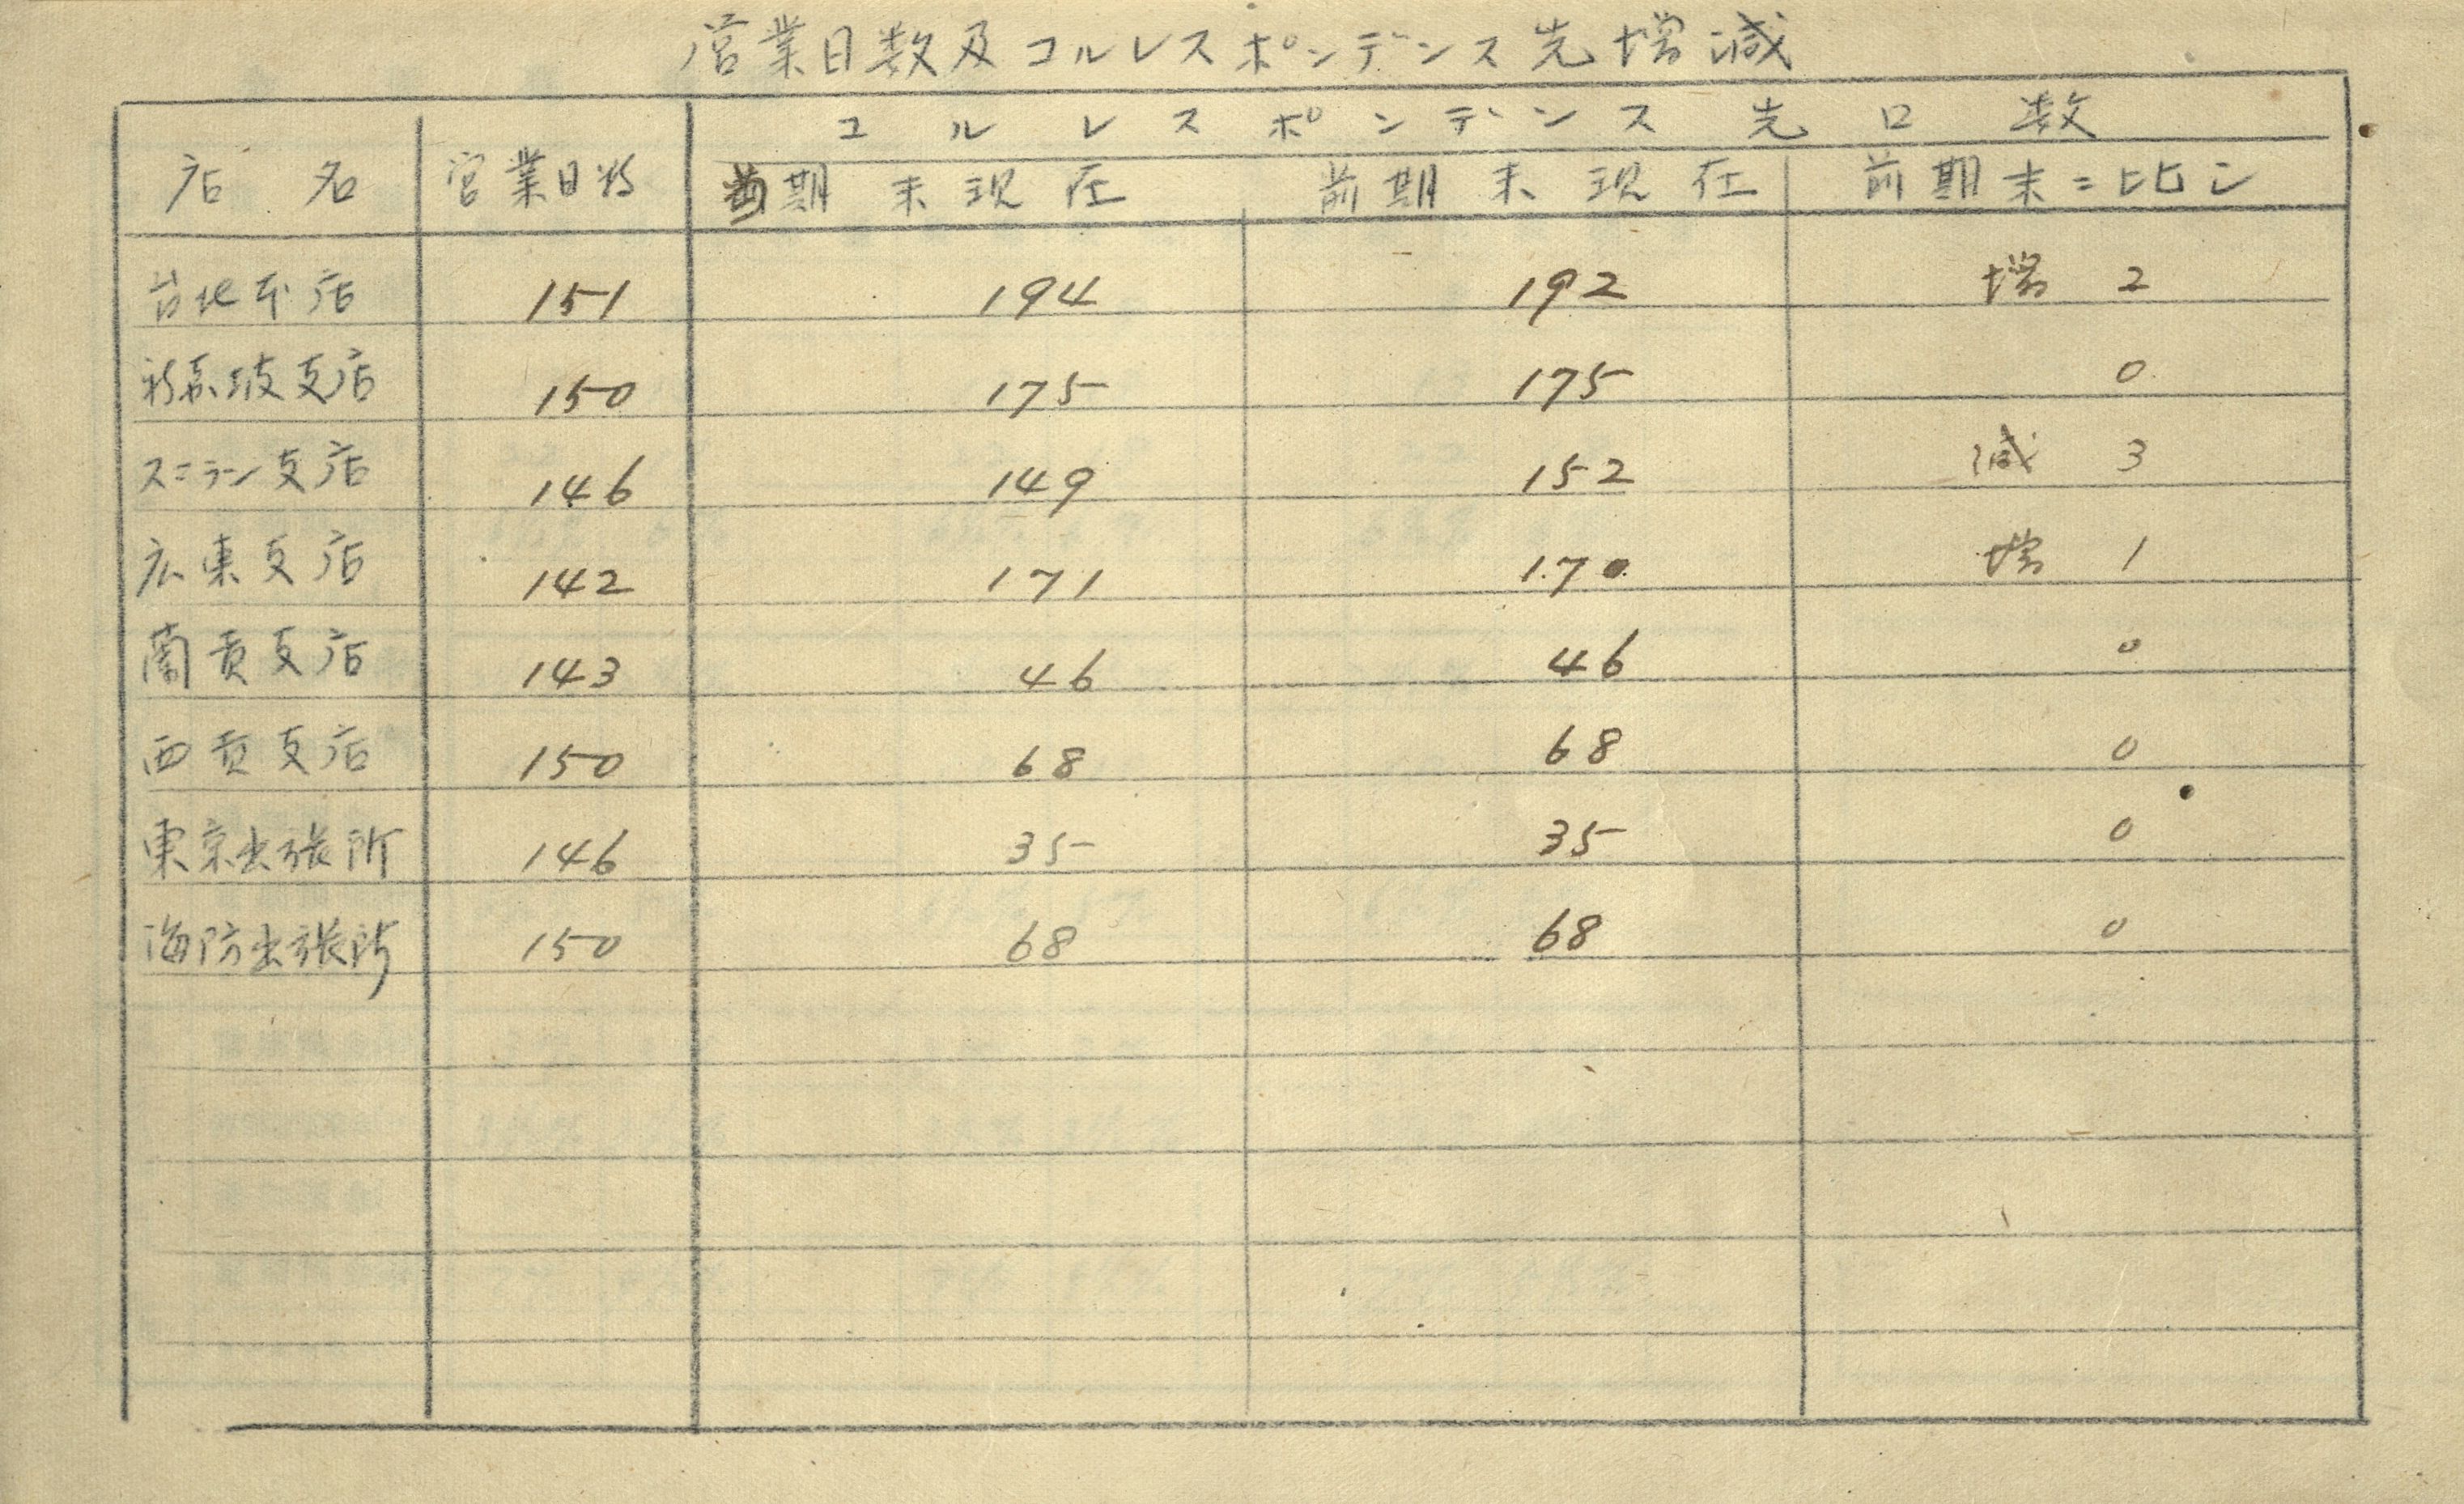 営業日数及コルレスポンデンス先増減
店名 営業日数 コルレスポンデンス先口数
当期末現在 前期末現在 前期末ニ比シ
台北本店 151 194 192 増 2
新嘉坡支店 150 175 175 0
スミラン支店 146 149 152 減 3
広東支店 142 171 170 増 1
蘭貢支店 143 46 46 0
西貢支店 150 68 68 0
東京出張所 146 35 35 0
海防出張所 150 68 68 0